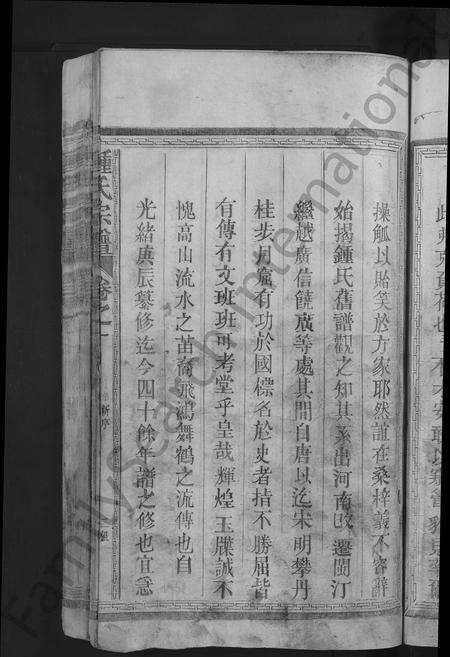 操觚以貽笑於方家耶然誼在桑梓義不容辭
始揭鍾氏舊譜觀之知其系出河南改遷閩汀
繼越廣信饒廣等處其間自唐以迄宋明攀丹
桂步月窟有功於國標名於史者指不勝屈皆
有傳有文班班可考堂乎皇哉輝煌玉牒誠不
愧高山流水之苗裔飛鴻舞鶴之流傳也自
光緒庚辰纂修迄今四十餘年譜之修也宜急
鍾氏宗譜 卷之一
新序
FamilySearch International